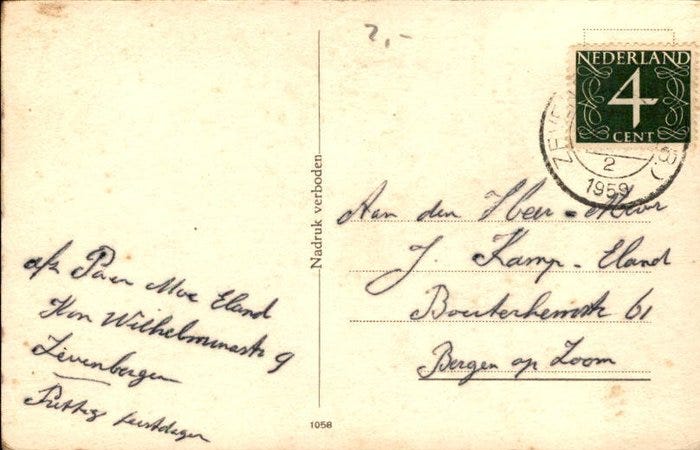 2,-
NEDERLAND
4
CENT
ZEVE
2
1959
Aan den Heer - Mevr
J. Kamp - Eland
Bouterhemstr 61
Bergen op Zoom
Nadruk verboden
afz Pa en Moe Eland
Kon Wilhelminastr 9
Zevenbergen
Prettig feestdagen
1058